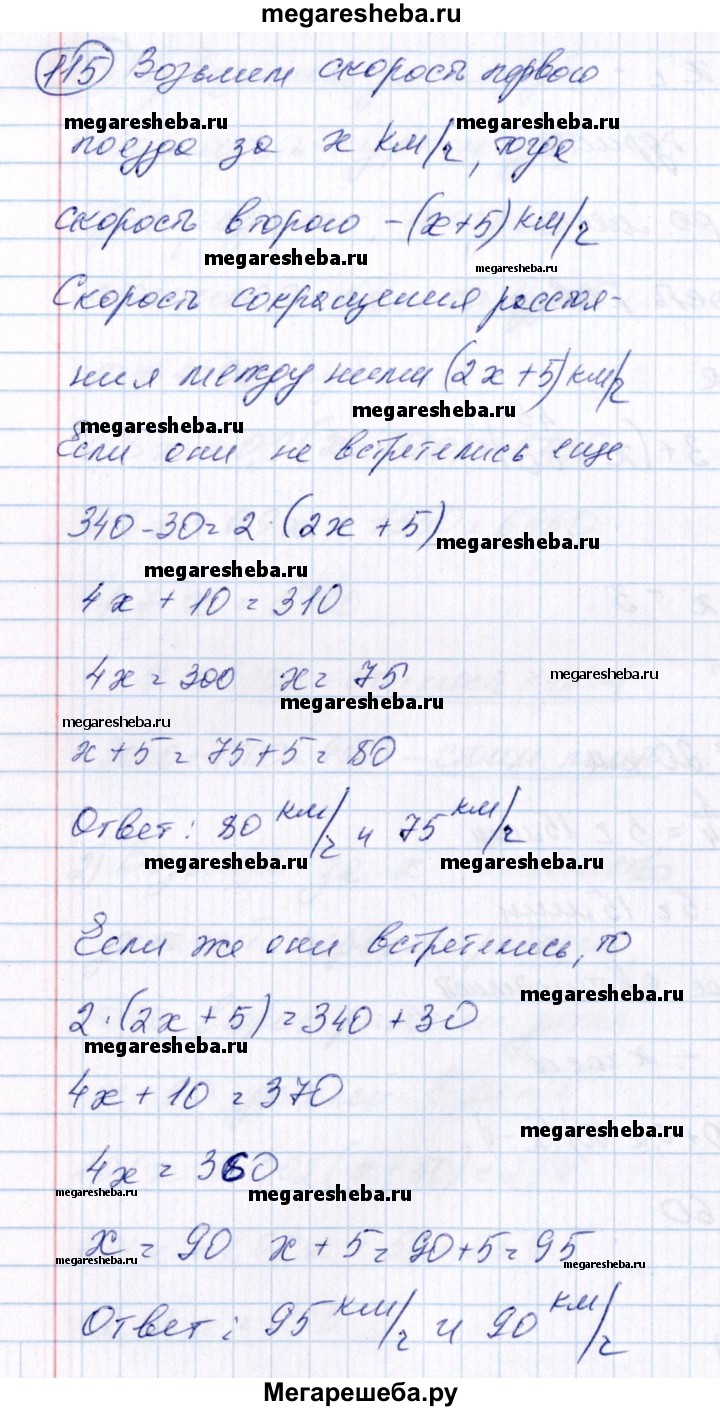 megaresheba.ru
115 Возьмем скорость первого
megaresheba.ru megaresheba.ru
поезда за x км/ч, тогда
скорость второго - (x+5) км/ч
megaresheba.ru megaresheba.ru
Скорость сокращения расстоя-
ния между ними (2x+5) км/ч
megaresheba.ru
megaresheba.ru
Если они не встретились еще
340-30=2·(2x+5)
megaresheba.ru
megaresheba.ru
4x+10=310
4x=300 x=75
megaresheba.ru
megaresheba.ru
megaresheba.ru
x+5=75+5=80
Ответ: 80 км/ч и 75 км/ч
megaresheba.ru megaresheba.ru
Если же они встретились, то
megaresheba.ru
2·(2x+5)=340+30
megaresheba.ru
4x+10=370
megaresheba.ru
4x=360
megaresheba.ru megaresheba.ru
x=90 x+5=90+5=95
megaresheba.ru megaresheba.ru
Ответ: 95 км/ч и 90 км/ч
Мегарешеба.ру